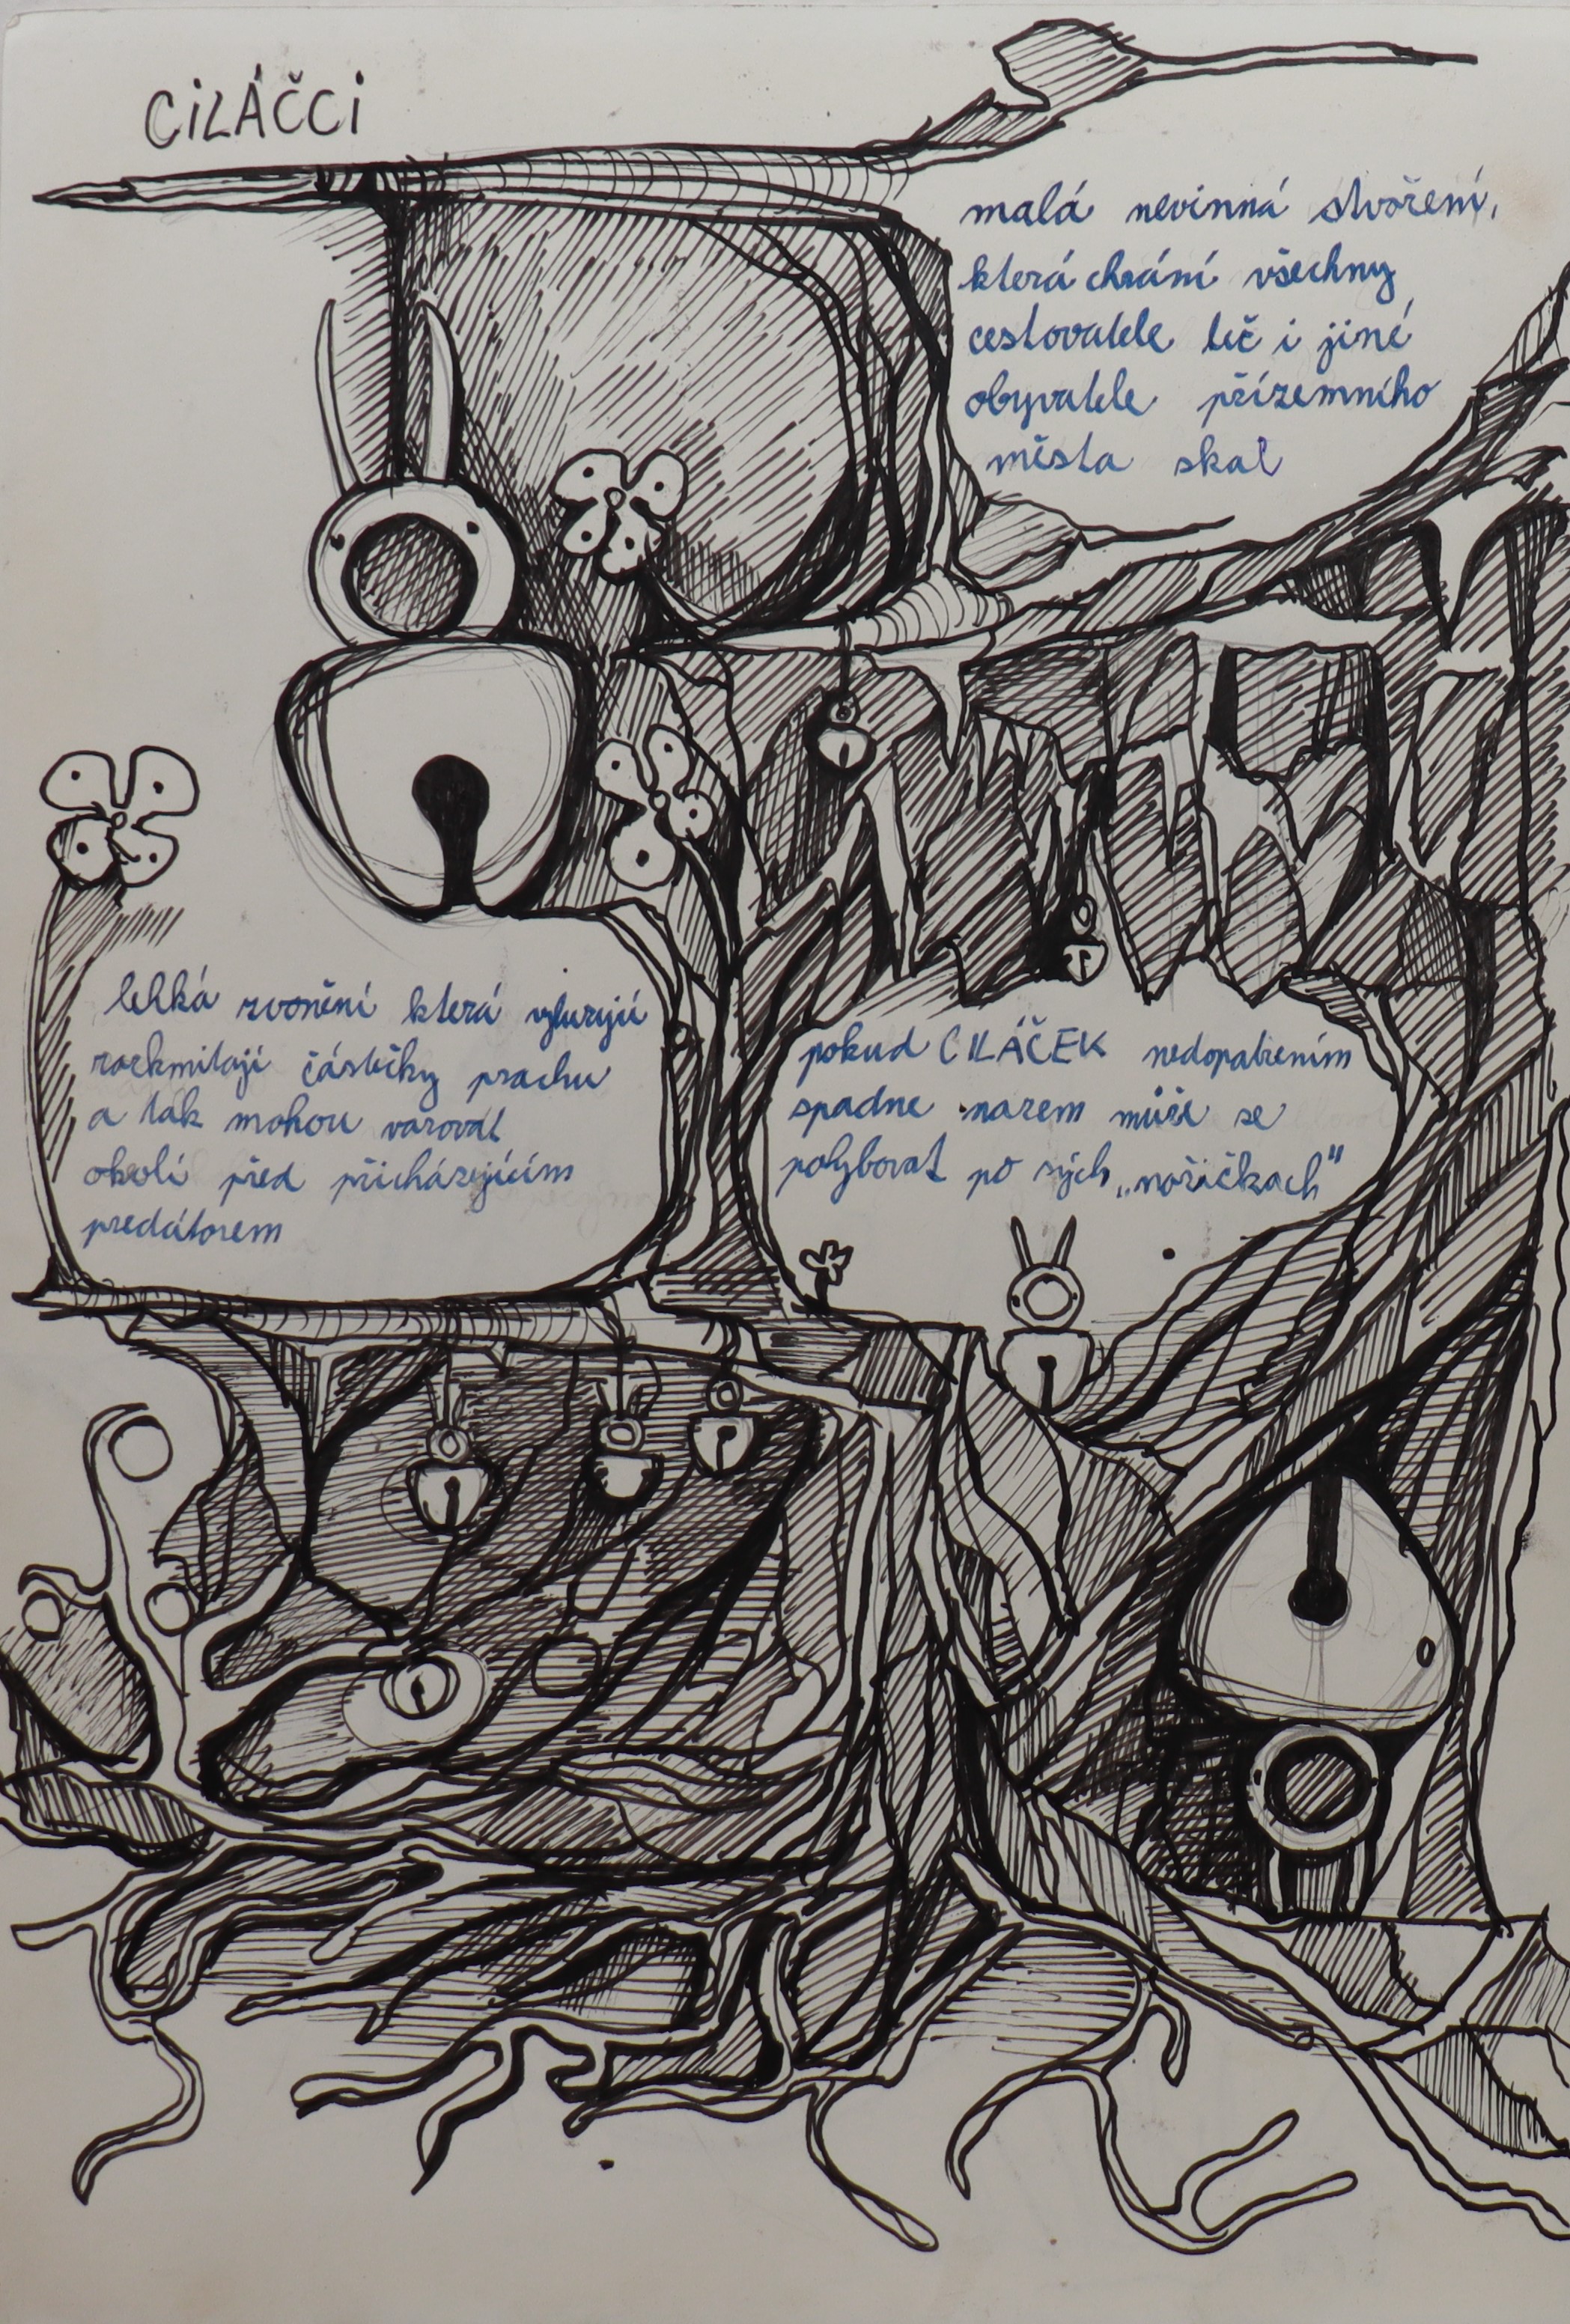 CILÁČCI
malá nevinná stvoření,
která chrání všechny
cestovatele leč i jiné
obyvatele přízemního
města skal
lehká zvonění která vyluzují
rozkmitají částičky prachu
a tak mohou varovat
okolí před přicházejícím
predátorem
pokud CILÁČEK nedopatřením
spadne na zem může se
pohybovat po svých „nožičkách"